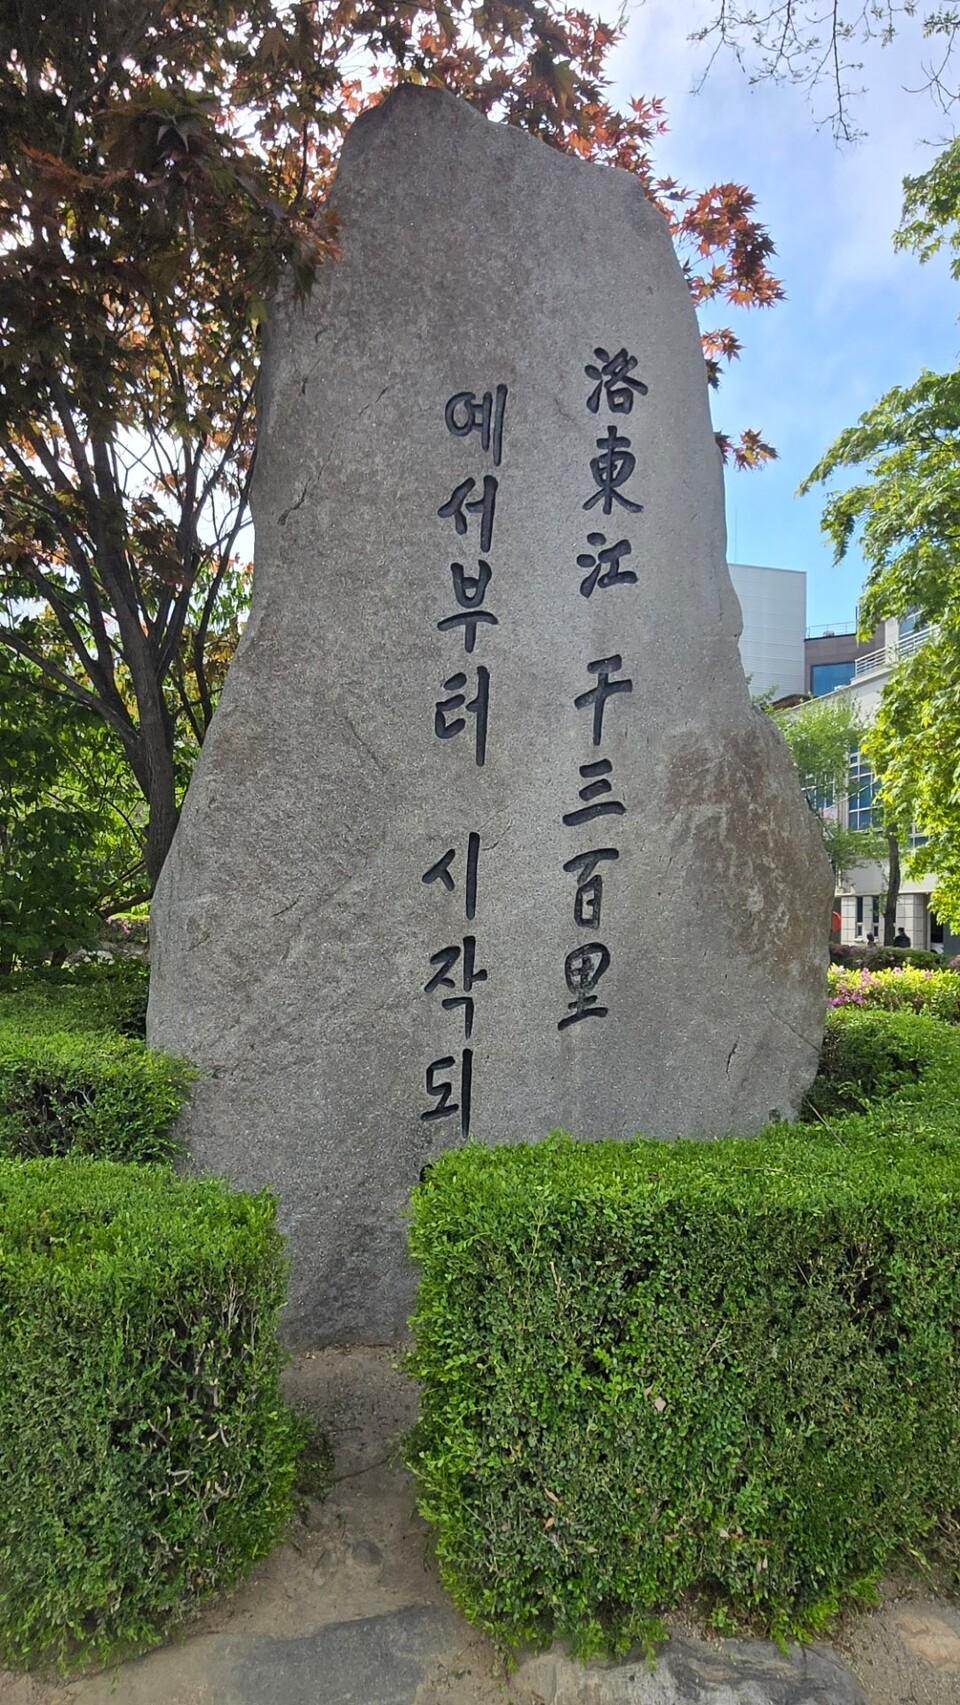 洛東江 千三百里
예서부터 시작되